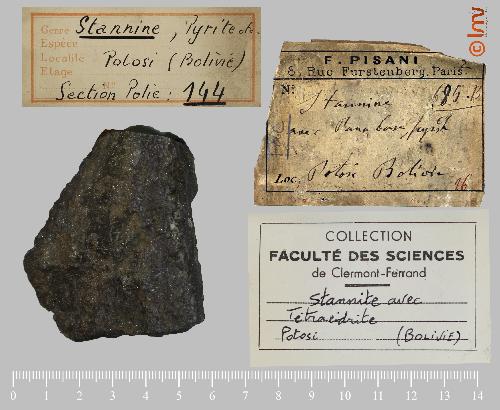 Genre Stannine, Pyrite
Espèce
Localité Potosi (Bolivie)
Etage
Section Polie: N° 144
F. PISANI
8, Rue Furstenberg, Paris
N°
Stannine
avec
Loc. Potosi Bolivie
COLLECTION
FACULTÉ DES SCIENCES
de Clermont-Ferrand
Stannite avec
Tétraédrite
Potosi (BOLIVIE)
© lmv
0 1 2 3 4 5 6 7 8 9 10 11 12 13 14